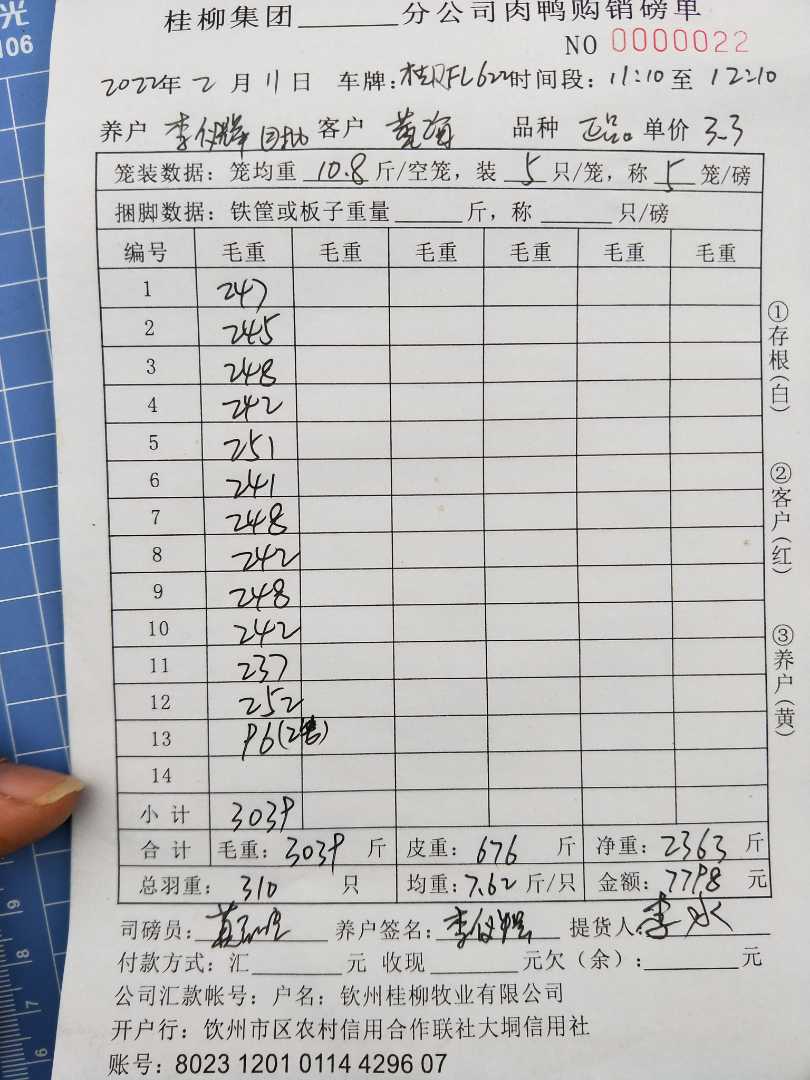 光
106
桂柳集团______分公司肉鸭购销磅单
NO 0000022
2022年 2 月 11 日 车牌:桂 FL622 时间段:11:10 至 12:10
养户 李 客户 黄海 品种 正品 单价 3.3
笼装数据:笼均重 10.8 斤/空笼,装 5 只/笼,称 5 笼/磅
捆脚数据:铁筐或板子重量______斤,称______只/磅
编号 毛重 毛重 毛重 毛重 毛重 毛重
1 247
2 245
3 248
4 242
5 251
6 241
7 248
8 242
9 248
10 242
11 237
12 252
13 96(2笼)
14
小计 3039
合计 毛重:3039 斤 皮重:676 斤 净重:2363 斤
总羽重:310 只 均重:7.62 斤/只 金额:7798 元
司磅员: 养户签名:李 提货人 李水
付款方式:汇______元 收现______元欠(余):______元
公司汇款帐号:户名:钦州桂柳牧业有限公司
开户行:饮州市区农村信用合作联社大垌信用社
账号:8023 1201 0114 4296 07
①存根(白)
②客户(红)
③养户(黄)
9
8
7
6